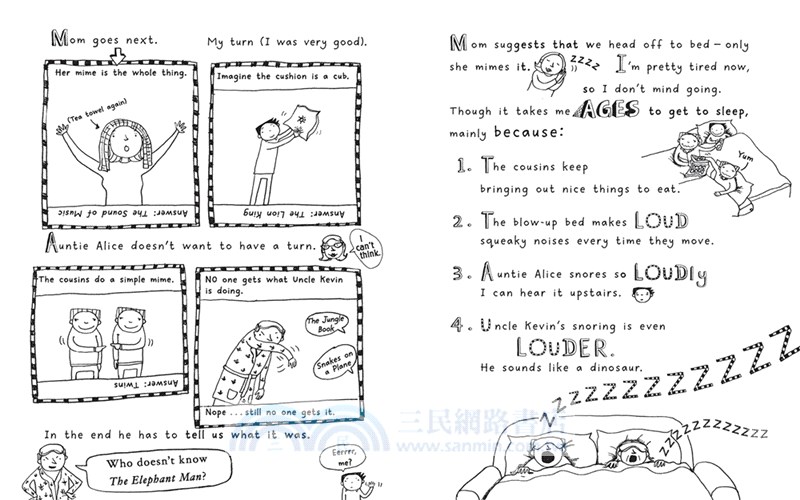 Mom goes next.
My turn (I was very good).
Her mime is the whole thing.
(Tea towel again)
Answer: The Sound of Music
Imagine the cushion is a cub.
Answer: The Lion King
Auntie Alice doesn't want to have a turn.
I
can't
think.
The cousins do a simple mime.
Answer: Twins
NO one gets what Uncle Kevin
is doing.
The Jungle
Book
Snakes on
a Plane
Nope . . . still no one gets it.
In the end he has to tell us what it was.
Who doesn't know
The Elephant Man?
Eerrrr,
me?
Mom suggests that we head off to bed – only
she mimes it.
zzzz
I'm pretty tired now,
so I don't mind going.
Though it takes me AGES to get to sleep,
mainly because:
Yum
1. The cousins keep
bringing out nice things to eat.
2. The blow-up bed makes LOUD
squeaky noises every time they move.
3. Auntie Alice snores so LOUDly
I can hear it upstairs.
4. Uncle Kevin's snoring is even
LOUDER.
He sounds like a dinosaur.
三民網路書店
www.sanmin.com.tw